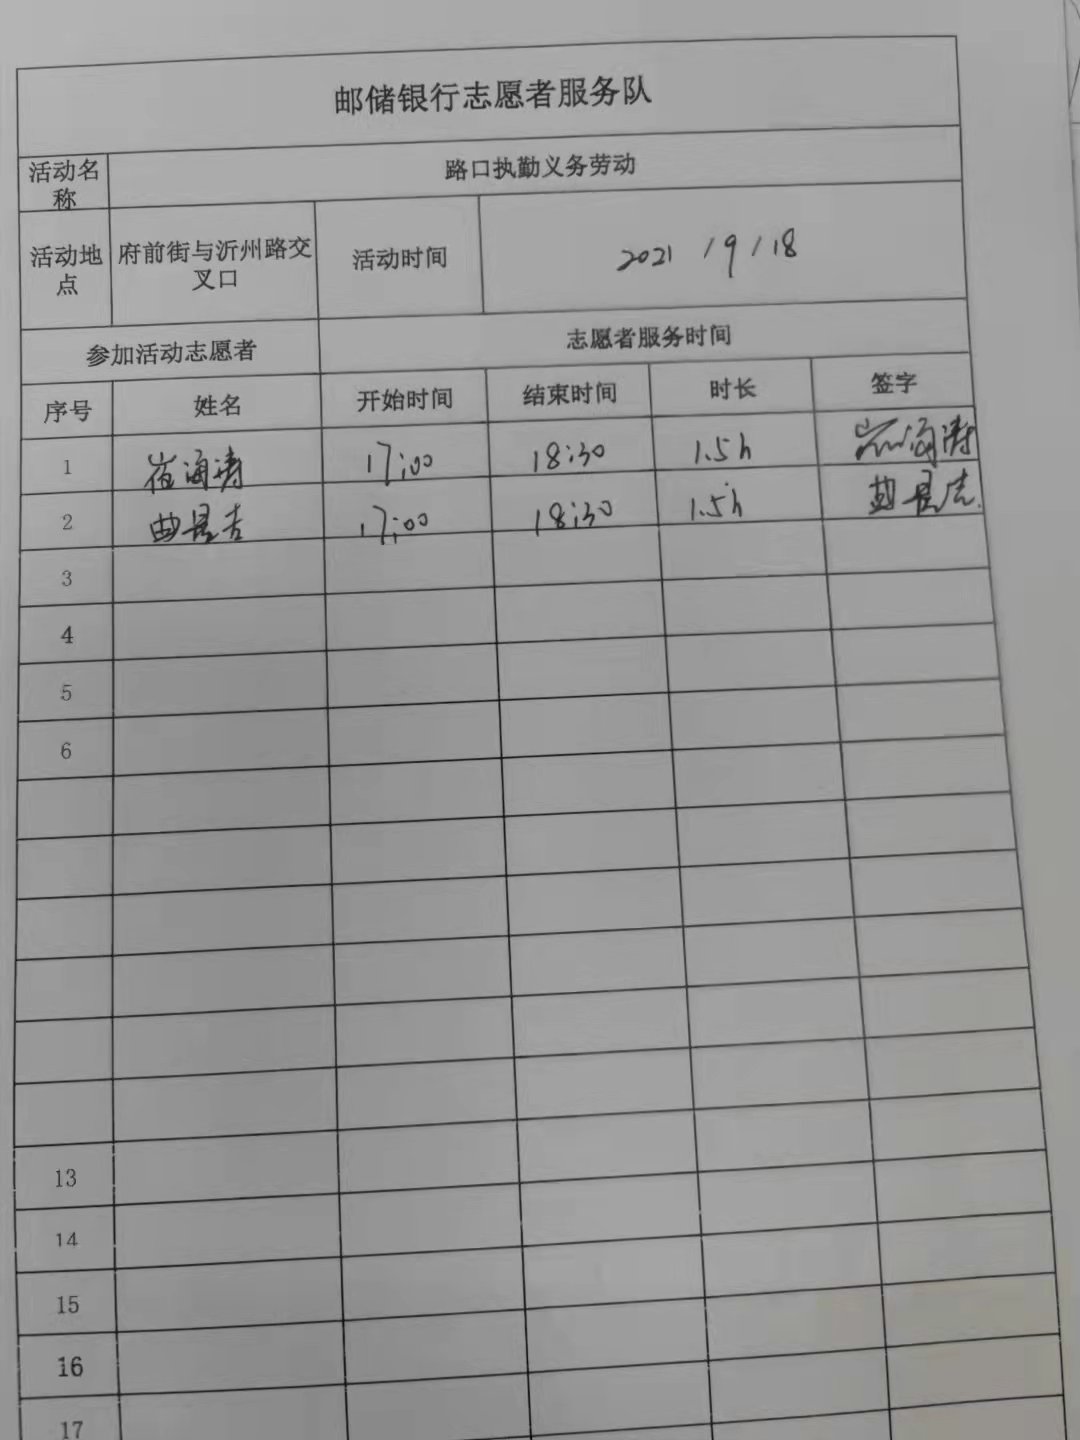 邮储银行志愿者服务队
活动名称 路口执勤义务劳动
活动地点 府前街与沂州路交叉口 活动时间 2021/9/18
参加活动志愿者 志愿者服务时间
序号 姓名 开始时间 结束时间 时长 签字
1 崔海涛 17:00 18:30 1.5h 崔海涛
2 曲昌吉 17:00 18:30 1.5h 曲昌吉
3
4
5
6
13
14
15
16
17